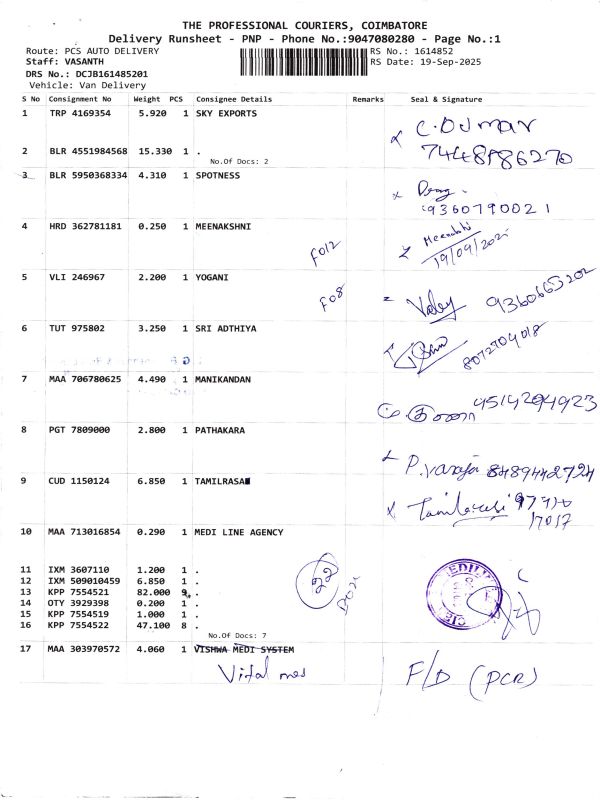 THE PROFESSIONAL COURIERS, COIMBATORE
Delivery Runsheet - PNP - Phone No.:9047080280 - Page No.:1
Route: PCS AUTO DELIVERY RS No.: 1614852
Staff: VASANTH RS Date: 19-Sep-2025
DRS No.: DCJB161485201
Vehicle: Van Delivery
S No Consignment No Weight PCS Consignee Details Remarks Seal & Signature
1 TRP 4169354 5.920 1 SKY EXPORTS
2 BLR 4551984568 15.330 1 .
No.Of Docs: 2
3 BLR 5950368334 4.310 1 SPOTNESS
9360790021
4 HRD 362781181 0.250 1 MEENAKSHNI
F012 Meenakshi
5 VLI 246967 2.200 1 YOGANI
F08
6 TUT 975802 3.250 1 SRI ADTHIYA
8072704018
7 MAA 706780625 4.490 1 MANIKANDAN
8 PGT 7809000 2.800 1 PATHAKARA
8489442724
9 CUD 1150124 6.850 1 TAMILRASA
Tamilarasi
10 MAA 713016854 0.290 1 MEDI LINE AGENCY
11 IXM 3607110 1.200 1 .
12 IXM 509010459 6.850 1 .
13 KPP 7554521 82.000 9 .
14 OTY 3929398 0.200 1 .
15 KPP 7554519 1.000 1 .
16 KPP 7554522 47.100 8 .
22
No.Of Docs: 7
17 MAA 303970572 4.060 1 VISHWA MEDI SYSTEM
Vital med
F/D (PCR)